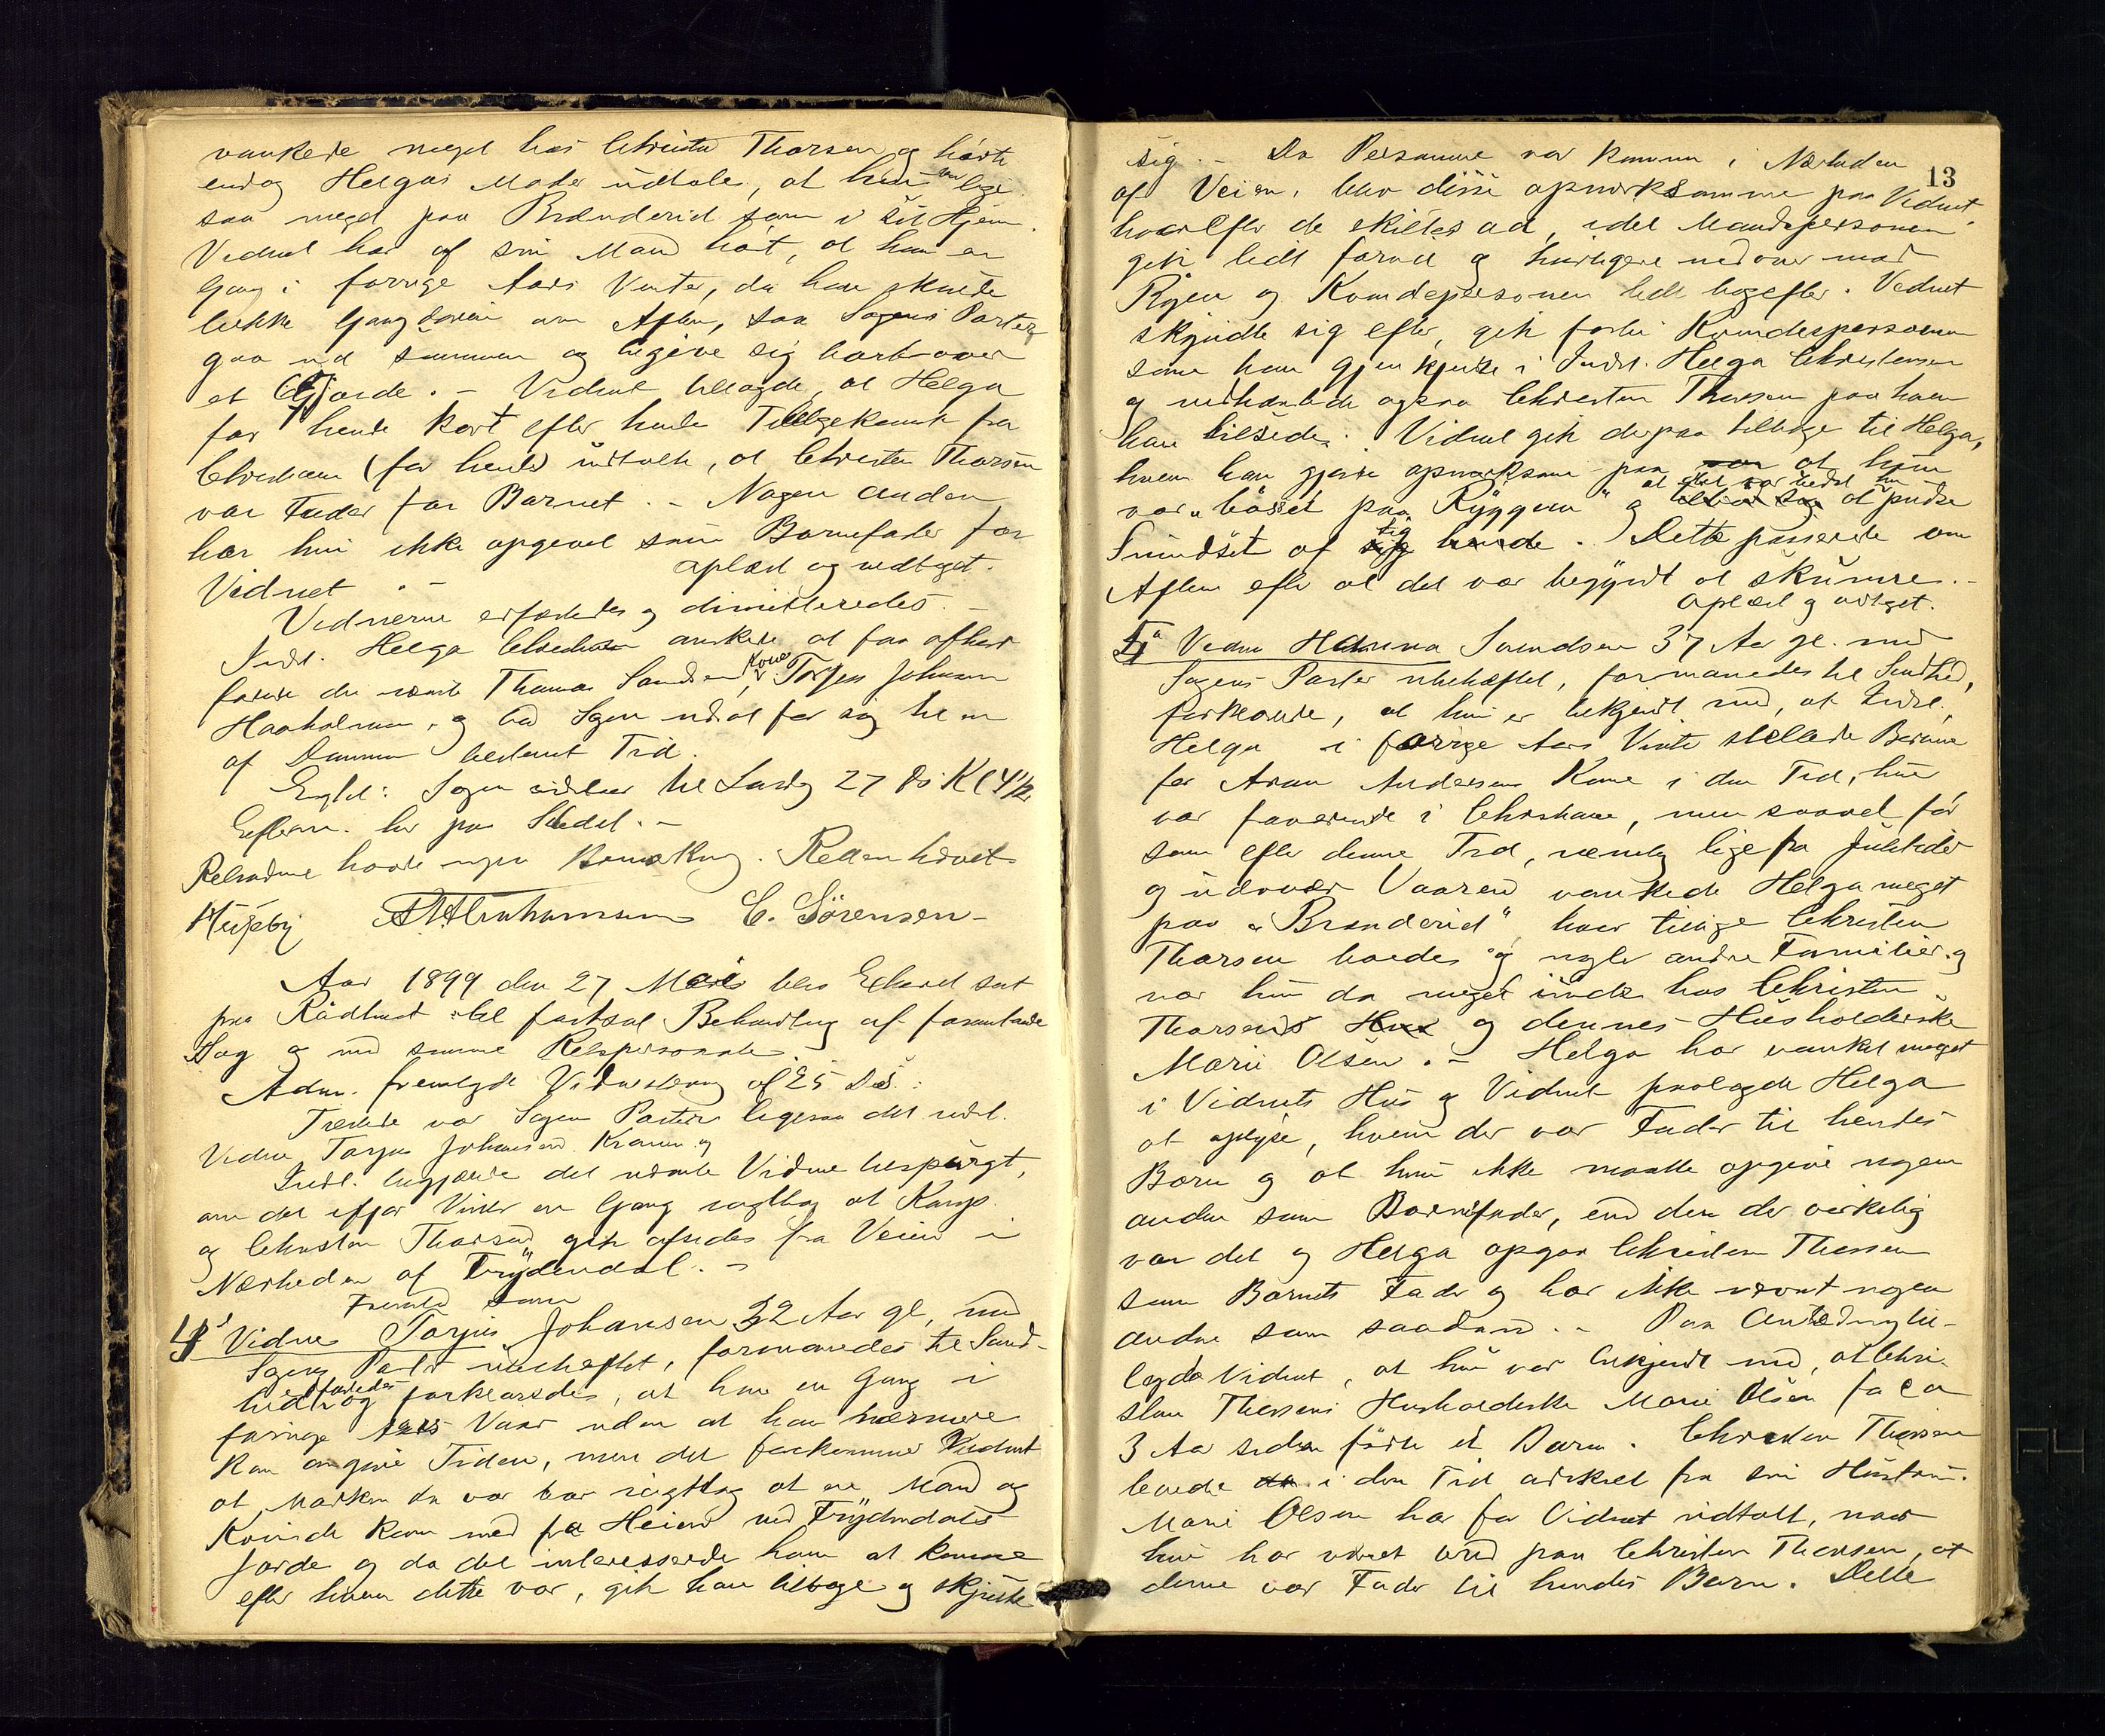 vankede meget hos Christen Thorsen og hørte
endog Helgas Moder udtale, at hun var lige
saa meget paa Brænderid som i sit Hjem.
Vidnet har af sin Mand hørt, at han en
Gang i forrige Aars Vinter, da han skulde
lukke Gangdøren om Aften, saa Sagens Parter
gaa ud sammen og begive sig bortover
et Gjærde. - Vidnet tillagde, at Helga
for hende kort efter hendes Tilbagekomst fra
Christiania (for hende) udtalte, at Christen Thorsen
var Fader for Barnet. - Nogen anden
har hun ikke opgivet som Barnefader for
Vidnet. - oplæst og vedtaget.
Vidnerne erfoledes og dimitteredes. -
Indst. Helga Christensen ønskede at faa afhørt
Thomas Sandsens Kone, Torjus Johansen
Haaholmen, og bad Sagen udsat for sig til en
af Dommeren bestemt Tid.
Eragtet: Sagen udsættes til Lørdag 27 ds Kl 4½
Efterm. her paa Stedet. -
Retsvidnerne havde ingen Bemærkning. Retten hævet
Huseby A Abrahamsen C. Sörensen -
Aar 1899 den 27 Mai blev Extraret sat
paa Rådhuset til fortsat Behandling af foranstaaende
Sag og med samme Retspersonale.
Adm. fremlagde Vidnestevning af 25 ds.:
Tilstede var Sagens Parter ligesaa det indst.
Vidne Torjus Johansen Kranen og
Indst. begjærede det nævnte Vidne bespurgt,
om det ifjor Vinter en Gang iagttog at Komp.
og Christen Thorsen gik afsides fra Veien i
Nærheden af Frydendal. -
Fremstod som
4de Vidne Torjus Johansen 32 Aar gl, med
Sagens Parter ubeheftet, formanedes til Sand-
hed og forklarede, at han en Gang i
forrige Aars Vaar uden at han nærmere
kan angive Tiden, men det forekommer Vidnet
at Marken da var bar iagttog at en Mand og
Kvinde kom ned fra Heien ved Frydendals
Jorde og da det interesserede ham at komme
efter hvem dette var, gik han tilbage og skjulte
13
sig. - Da Personerne var kommen i Nærheden
af Veien, blev disse opmærksomme paa Vidnet
hvorefter de skiltes ad, idet Mandspersonen
gik lidt forud og hurtigere nedover mod
Byen og Kvindepersonen lidt bagefter. Vidnet
skyndte sig efter, gik forbi Kvindespersonen
som han gjenkjendte i Indst. Helga Christensen
og indhentede ogsaa Christen Thorsen paa hvem
han hilsede. Vidnet gik derpaa tilbage til Helga,
hvem han gjorde opmærksom paa at hun
var "bösset paa Ryggen" og at det var bedst hun pudse
Smudset af sig. Dette passerede om
Aften efter at det var begyndt at skumre. -
Oplæst og vedtaget.
5te Vidne Hanna Svendsen 37 Aar gl. med
Sagens Parter ubeheftet, formanedes til Sandhed,
forklarede, at hun er bekjendt med, at Indst.
Helga i forrige Aars Vinter stellede Børnene
for Aron Andersens Kone i den Tid, hun
var fraværende i Christiania, men saavel før
som efter denne Tid, nemlig lige fra Juletider
og udover Vaaren vankede Helga meget
paa "Brænderid", hvor tillige Christen
Thorsen boede og nogle andre Familier og
var hun da meget inde hos Christen
Thorsen og dennes Husholderske
Marie Olsen. - Helga har vanket meget
i Vidnets Hus og Vidnet paalagde Helga
at oplyse, hvem der var Fader til hendes
Barn og at hun ikke maatte opgive nogen
anden som Barnefader, end den der virkelig
var det og Helga opgav Christen Thorsen
som Barnets Fader og har ikke nævnt nogen
anden som saadan. - Paa Anledning til-
lagde Vidnet, at hun var bekjendt med, at Chri-
sten Thorsens Husholderske Marie Olsen for ca
3 Aar siden fødte et Barn. Christen Thorsen
levede i den Tid adskilt fra sin Hustru.
Marie Olsen har for Vidnet udtalt, naar
hun har været vred paa Christen Thorsen, at
denne var Fader til hendes Barn. Dette